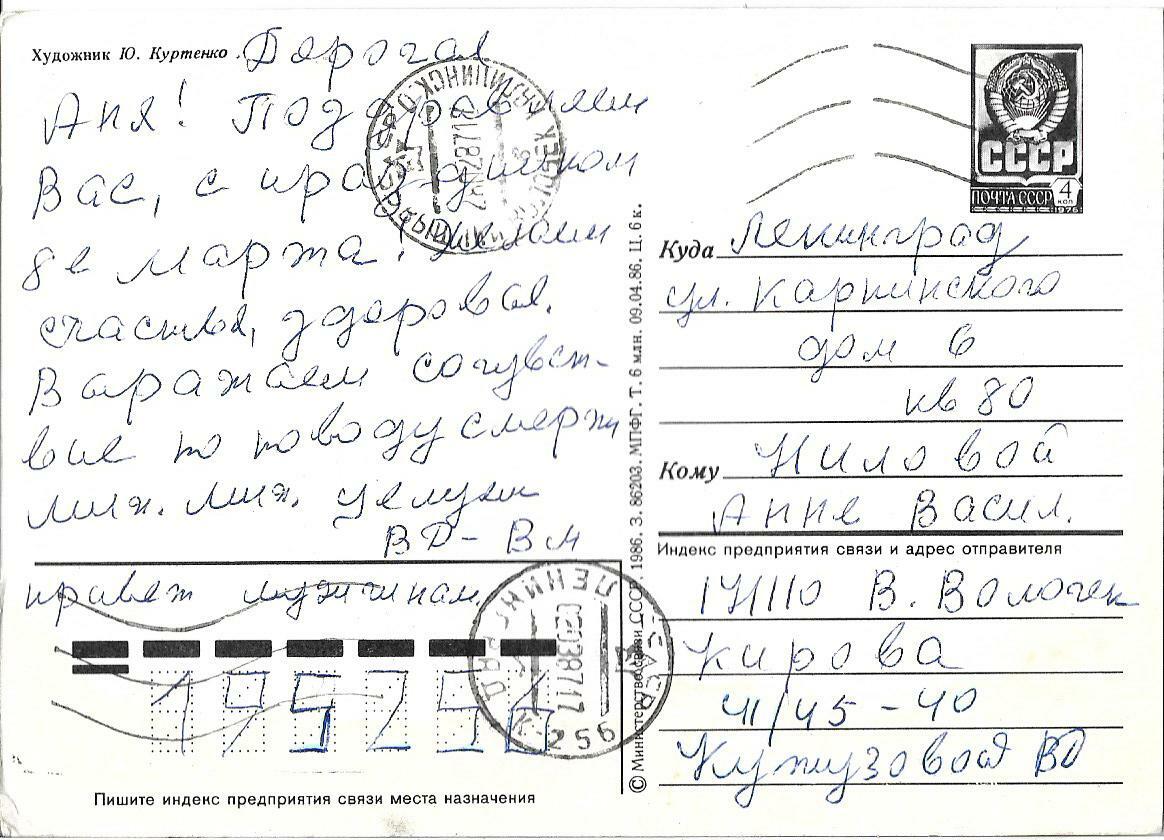 Художник Ю. Куртенко
Дорогая
Аня! Поздравляем
Вас, с праздником
8е марта! Желаем
счастья, здоровья.
Выражаем сочувст-
вие по поводу смерти
целуем
ВД - Вм
привет мужчинам.
Пишите индекс предприятия связи места назначения
© Министерство связи СССР. 1986. З. 86203. МПФГ. Т. 6 млн. 09.04.86. Ц. 6 к.
СССР
ПОЧТА СССР
4 коп
1976
Куда Ленинград
ул. Карпинского
дом 6
кв 80
Кому Ниловой
Анне Васил.
Индекс предприятия связи и адрес отправителя
171110 В. Волочек
Кирова
41/45-40
Кутузовой ВД
ЛЕНИНГРАД
К-256